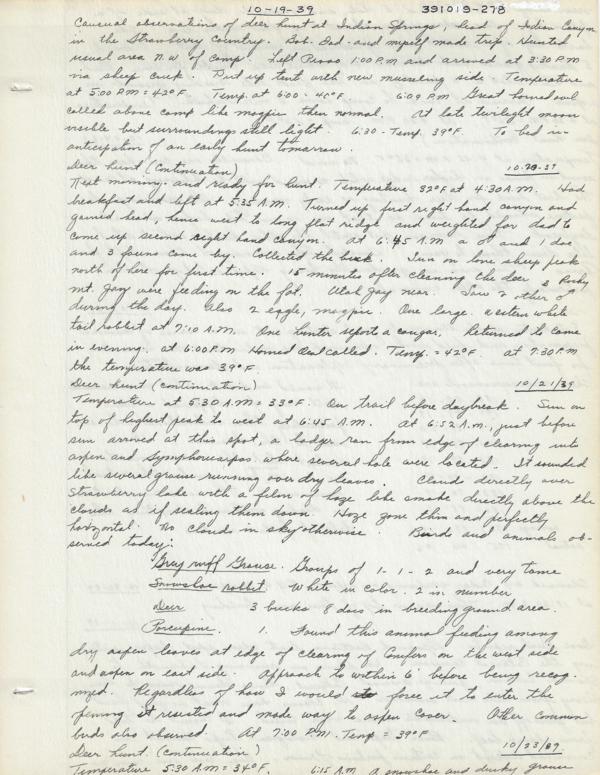 10-19-39 391019-278
Causual observations of deer hunt at Indian Springs, head of Indian Canyon
in the Strawberry Country. Bob-Dad-and myself made trip. Hunted
usual area N.W. of camp. Left Provo 1:00 P.M and arrived at 3:30 P.M
via sheep creek. Put up tent with new musseling side. Temperature
at 5:00 P.M = 42°F. Temp. at 6:00 - 40°F. 6:09 P.M Great horned owl
called above camp like magpie then normal. At late twilight moon
visible but surroundings still light. 6:30 - Temp. 39°F. To bed in
anticipation of an early hunt tomorrow.
Deer hunt (Continuation) 10-20-39
Next morning and ready for hunt. Temperature 32°F at 4:30 A.M. Had
breakfast and left at 5:35 A.M. Turned up first right hand canyon and
gained head, hence went to long flat ridge and weighted for dad to
come up second right hand canyon. At 6:45 A.M a ♂ and 1 doe
and 3 fawns come by. Collected the buck. Sun on lone sheep peak
north of here for first time. 15 minutes after cleaning the deer 2 Rocky
Mt. Jay were feeding on the fat. Utah Jay near. Saw 2 other ♂
during the day. Also 2 eagle, magpie. One large western white
tail rabbit at 7:10 A.M. One hunter report a cougar. Returned to came
in evening. at 6:00 P.M Horned Owl called. Temp. = 42°F. at 7:30 P.M
the temperature was 39°F.
Deer hunt (Continuation) 10/21/39
Temperature at 5:30 A.M = 33°F. On trail before daybreak. Sun on
top of highest peak to west at 6:45 A.M. At 6:52 A.M., just before
sun arrived at this spot, a badger ran from edge of clearing into
aspen and Symphoricarpos where several hole were located. It sounded
like several grouse running over dry leaves. Clouds directly over
Strawberry lake with a film of haze like smoke directly above the
clouds as if sealing them down. Haze zone thin and perfectly
horizontal. No clouds in sky otherwise. Birds and animals ob-
served today:
Gray ruff Grouse. Groups of 1-1-2 and very tame
Snowshoe rabbit. White in color. 2 in number
Deer 3 bucks 8 does in breeding ground area.
Porcupine. 1. Found this animal feeding among
dry aspen leaves at edge of clearing of Conifers on the west side
and aspen on east side. Approach to within 6' before being recog-
nized. Regardless of how I would to force it to enter the
opening it resisted and made way to aspen cover. Other common
birds also observed. At 7:00 P.M. Temp = 39°F
Deer hunt. (Continuation) 10/23/39
Temperature 5:30 A.M = 34°F. 6:15 A.M a snowshoe and dusky grouse